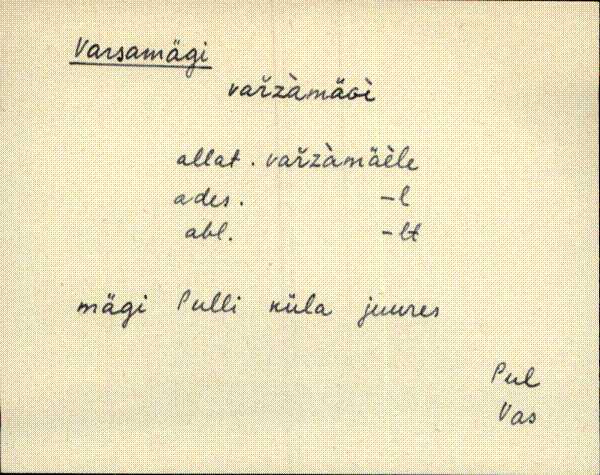 Varsamägi
var̆zàmäɢì
allat. var̆zàmäèle
ades. -l
abl. -lt
mägi Pulli küla juures
Pul
Vas